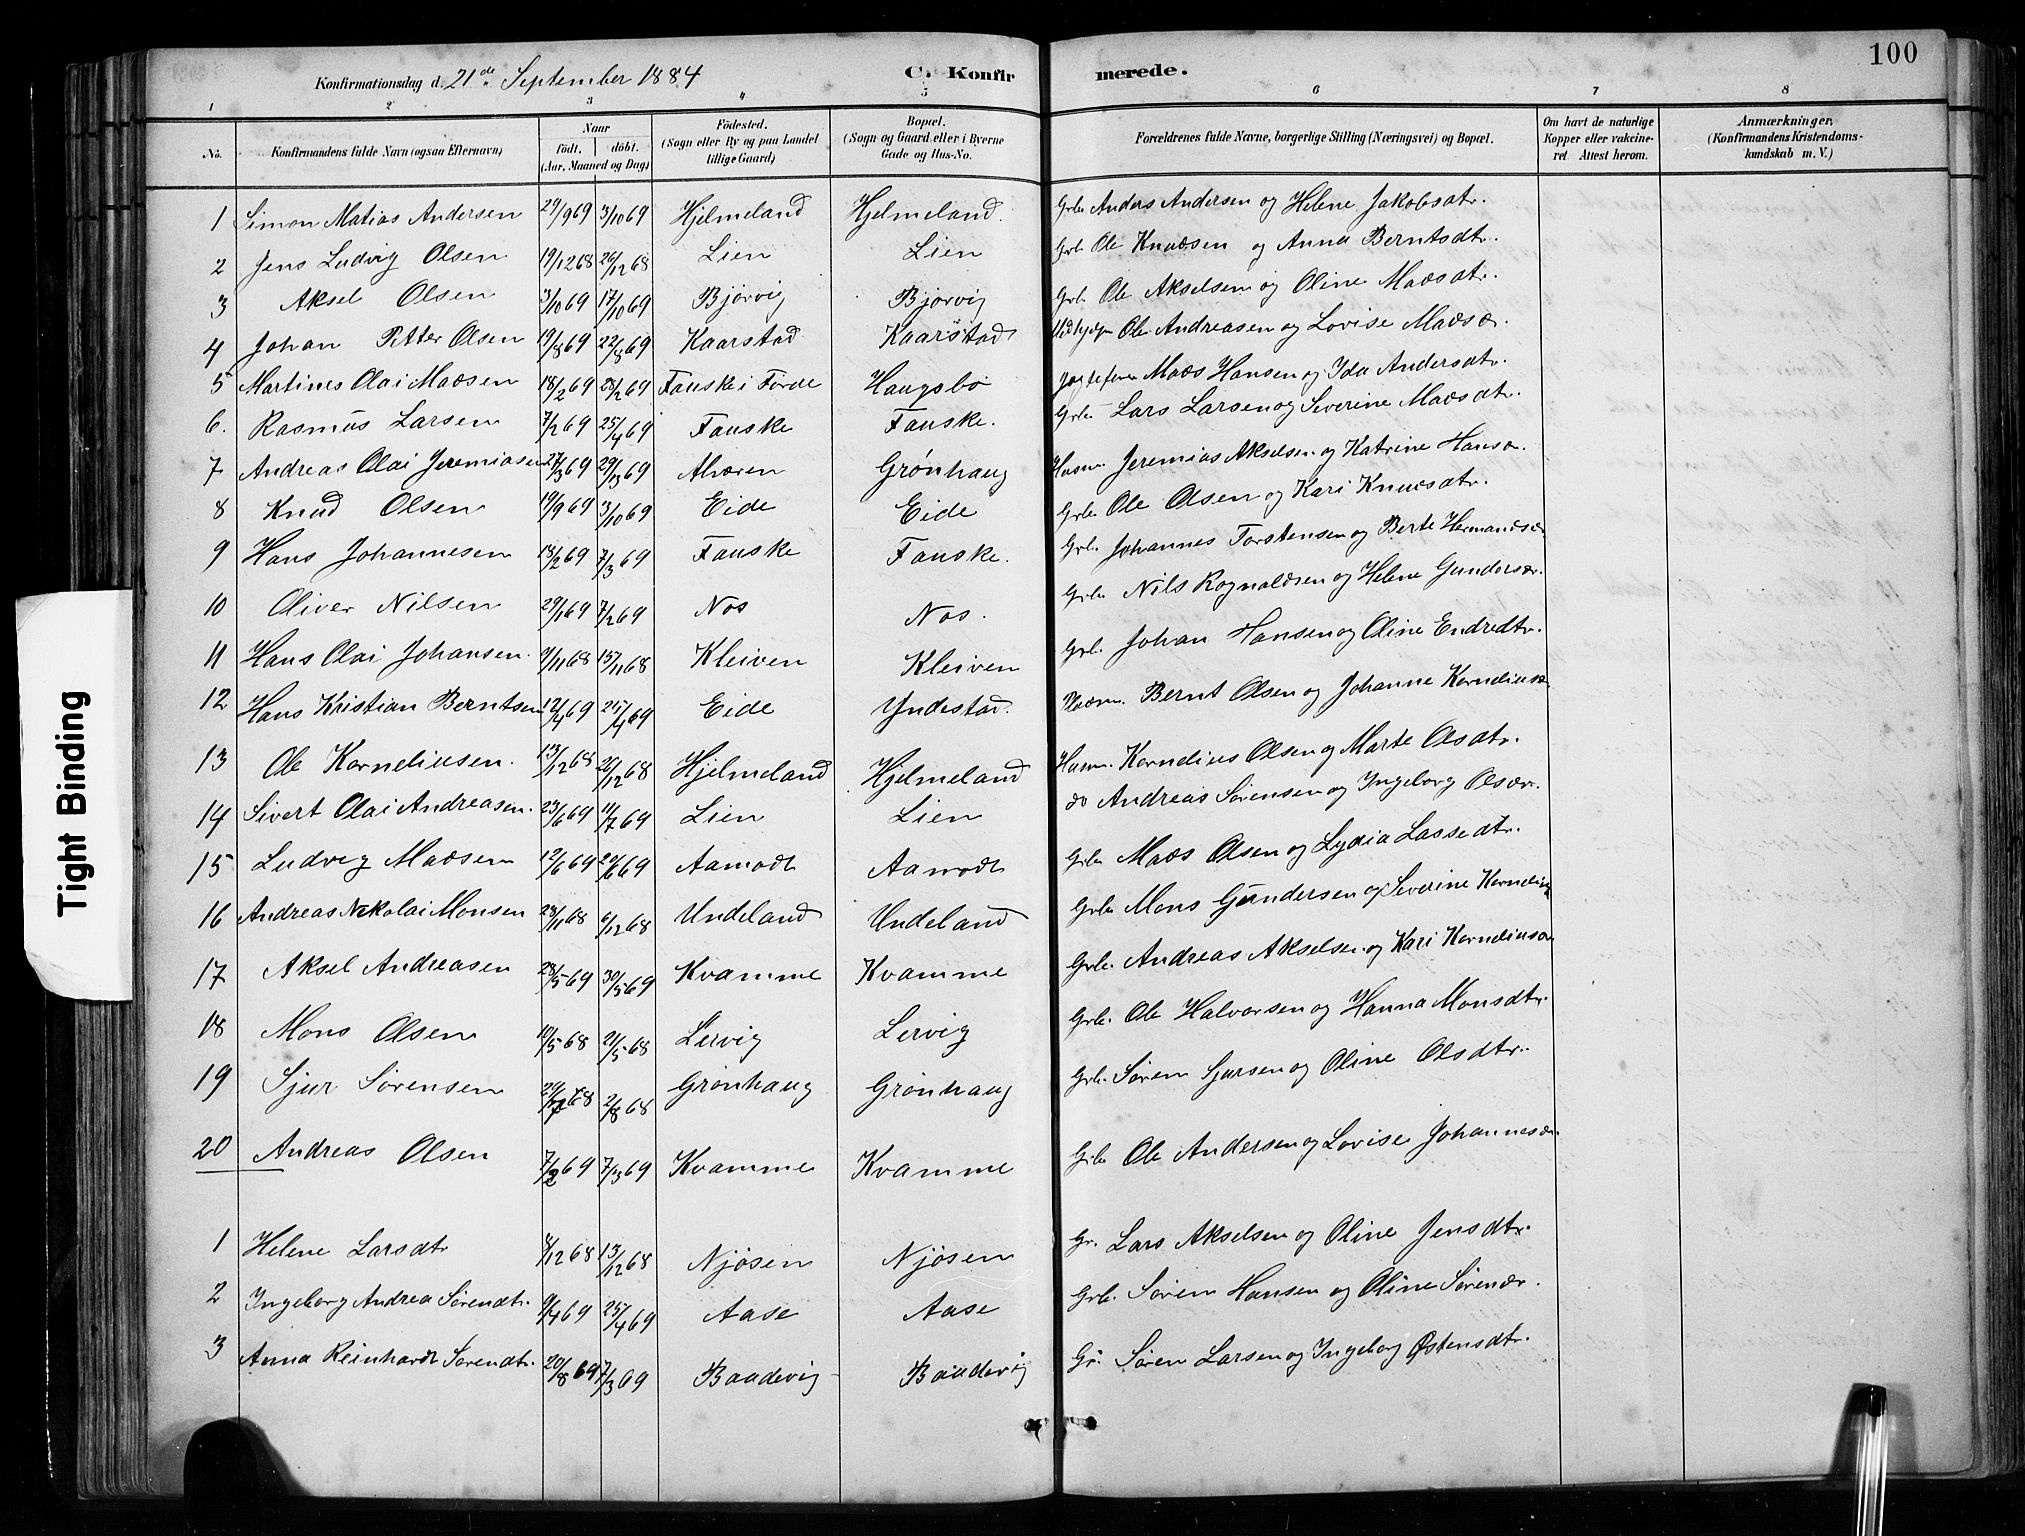 100
Konfirmationsdag d. 21de September 1884 C. Konfirmerede.
1 2 3 4 5 6 7 8
No. Konfirmandens fulde Navn (ogsaa Efternavn) Naar født. døbt. (Aar, Maaned og Dag) Fødested. (Sogn eller By og paa Landet tillige Gaard) Bopæl. (Sogn og Gaard eller i Byerne Gade og Hus-No. Forældrenes fulde Navne, borgerlige Stilling (Næringsvei) og Bopæl. Om havt de naturlige Kopper eller vakcineret Attest herom. Anmærkninger. (Konfirmandens Kristendomskundskab m. V.)
1 Simon Matias Andersen 29/9 69 3/10 69 Hjelmeland Hjelmeland. Grbr Anders Andersen og Helene Jakobsdtr.
2 Jens Ludvig Olsen 19/12 68 26/12 68 Lien Lien Grb. Ole Knudsen og Anna Berntsdtr.
3 Aksel Olsen 3/10 69 17/10 69 Bjørvig Bjørvig Grb. Ole Akselsen og Oline Madsdtr.
4 Johan Petter Olsen 19/8 69 22/8 69 Kaarstad Kaarstad Ole Andreasen og Lovise Madsdr.
5 Martines Olai Madsen 18/2 69 28/2 69 Fauske i Førde Haugsbø Mads Hansen og Ida Andersdtr.
6. Rasmus Larsen 7/2 69 25/4 69 Fauske Fauske. Grbr Lars Larsen og Severine Madsdtr.
7 Andreas Olai Jeremiasen 27/3 69 29/3 69 Alværen Grønhaug Husm. Jeremias Akselsen og Katrine Hansdr.
8 Knud Olsen 19/9 69 3/10 69 Eide Eide Grbr Ole Olsen og Kari Knudsdtr.
9 Hans Johannesen 18/2 69 7/3 69 Fauske Fauske. Grb. Johannes Torstensen og Berte Hermandsdr
10 Oliver Nilsen 29/1 69 7/2 69 Nos Nos. Grbr Nils Rognaldsen og Helene Gundersdr.
11 Hans Olai Johansen. 9/11 68 15/11 68 Kleiven Kleiven Grb. Johan Hansen og Oline Endredtr.
12 Hans Kristian Berntsen 12/4 69 25/4 69 Eide Yndestad. Bernt Olsen og Johanne Korneliusdr
13 Ole Korneliusen. 13/12 68 26/12 68 Hjelmeland Hjelmeland Husm. Kornelius Olsen og Marte Olsdtr.
14 Sivert Olai Andreasen. 23/6 69 11/7 69 Lien Lien do Andreas Sørensen og Ingeborg Olsdr.
15 Ludvig Madsen 12/6 69 20/6 69 Aamodt Aamodt Grbr Mads Olsen og Lydia Lassedtr.
16 Andreas Nikolai Monsen 28/11 68 6/12 68 Undeland Undeland Grbr Mons Gundersen og Severine Kornelius
17 Aksel Andreasen 28/5 69 30/5 69 Kvamme Kvamme Grbr. Andreas Akselsen og Kari Korneliusdr
18 Mons Olsen 10/5 68 21/5 68 Lervig Lervig Grbr. Ole Halvorsen og Hanna Monsdtr.
19 Sjur Sørensen 29/7 68 2/8 68 Grønhaug Grønhaug Grbr. Søren Sjursen og Oline Olsdtr.
20 Andreas Olsen 7/2 69 7/3 69 Kvamme Kvamme Grbr Ole Andersen og Lovise Johannesdr.
1 Helene Larsdtr 8/12 68 13/12 68 Njøsen Njøsen Gr. Lars Akselsen og Oline Jensdtr.
2 Ingeborg Andrea Sørendtr. 9/4 69 25/4 69 Aase Aase Grbr. Søren Hansen og Oline Sørendr.
3 Anna Reinhardt Sørendtr. 20/8 69 7/3 69 Baadevig Baadevig Gr. Søren Larsen og Ingeborg Østensdtr.
Tight Binding